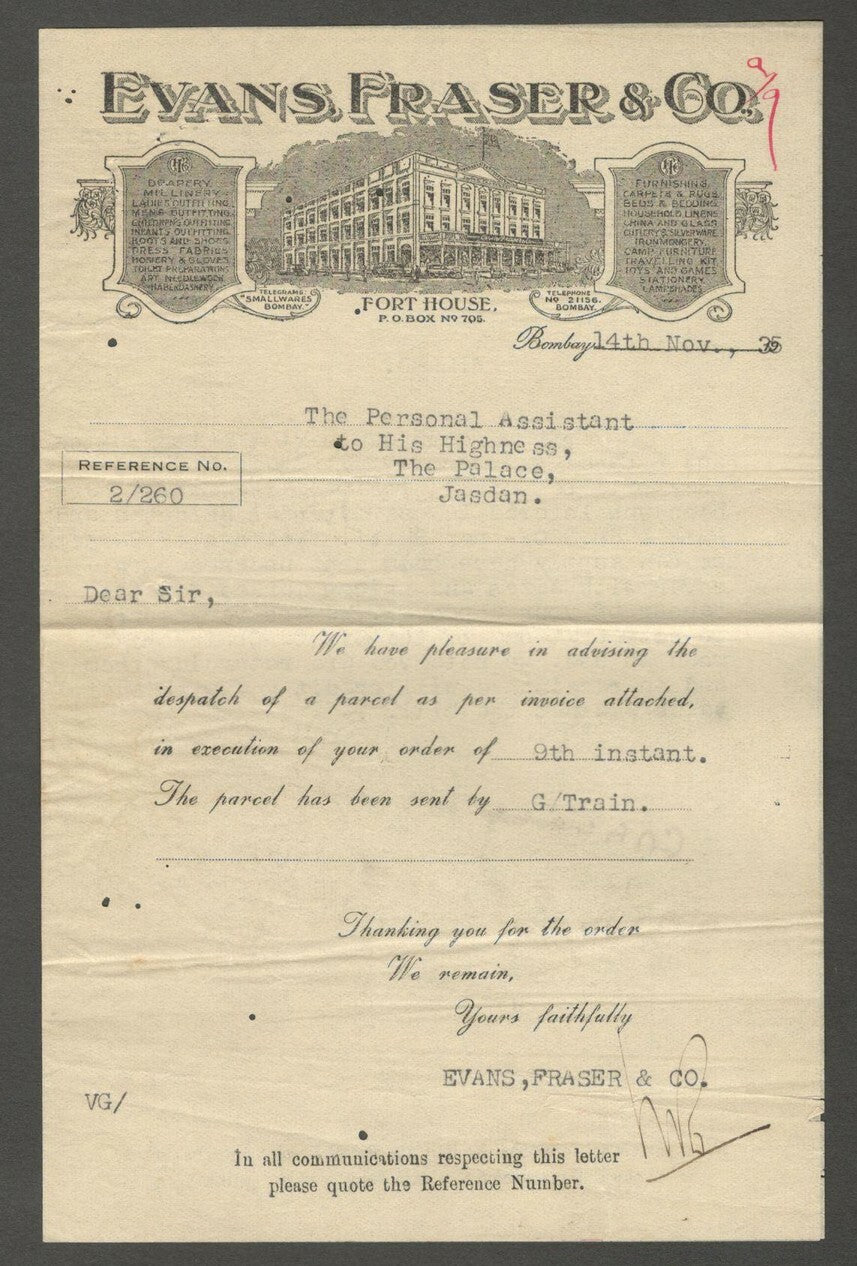 EVANS, FRASER & CO.
DRAPERY
MILLINERY
LADIES OUTFITTING
MEN'S OUTFITTING
CHILDREN'S OUTFITTING
INFANTS OUTFITTING
BOOTS AND SHOES
DRESS FABRICS
HOSIERY & GLOVES
TOILET PREPARATIONS
ART NEEDLEWORK
HABERDASHERY
FURNISHING
CARPETS & RUGS
BEDS & BEDDING
HOUSEHOLD LINENS
CHINA AND GLASS
CUTLERY & SILVERWARE
IRONMONGERY
CAMP FURNITURE
TRAVELLING KIT
TOYS AND GAMES
STATIONERY
LAMPSHADES
TELEGRAMS:
"SMALLWARES"
BOMBAY.
FORT HOUSE,
P.O. BOX No 705.
TELEPHONE
No 21156.
BOMBAY.
Bombay 14th Nov., 35
The Personal Assistant
to His Highness,
The Palace,
Jasdan.
REFERENCE NO.
2/260
Dear Sir,
We have pleasure in advising the
despatch of a parcel as per invoice attached,
in execution of your order of 9th instant.
The parcel has been sent by G/Train.
Thanking you for the order
We remain,
Yours faithfully
EVANS,FRASER & CO.
VG/
In all communications respecting this letter
please quote the Reference Number.